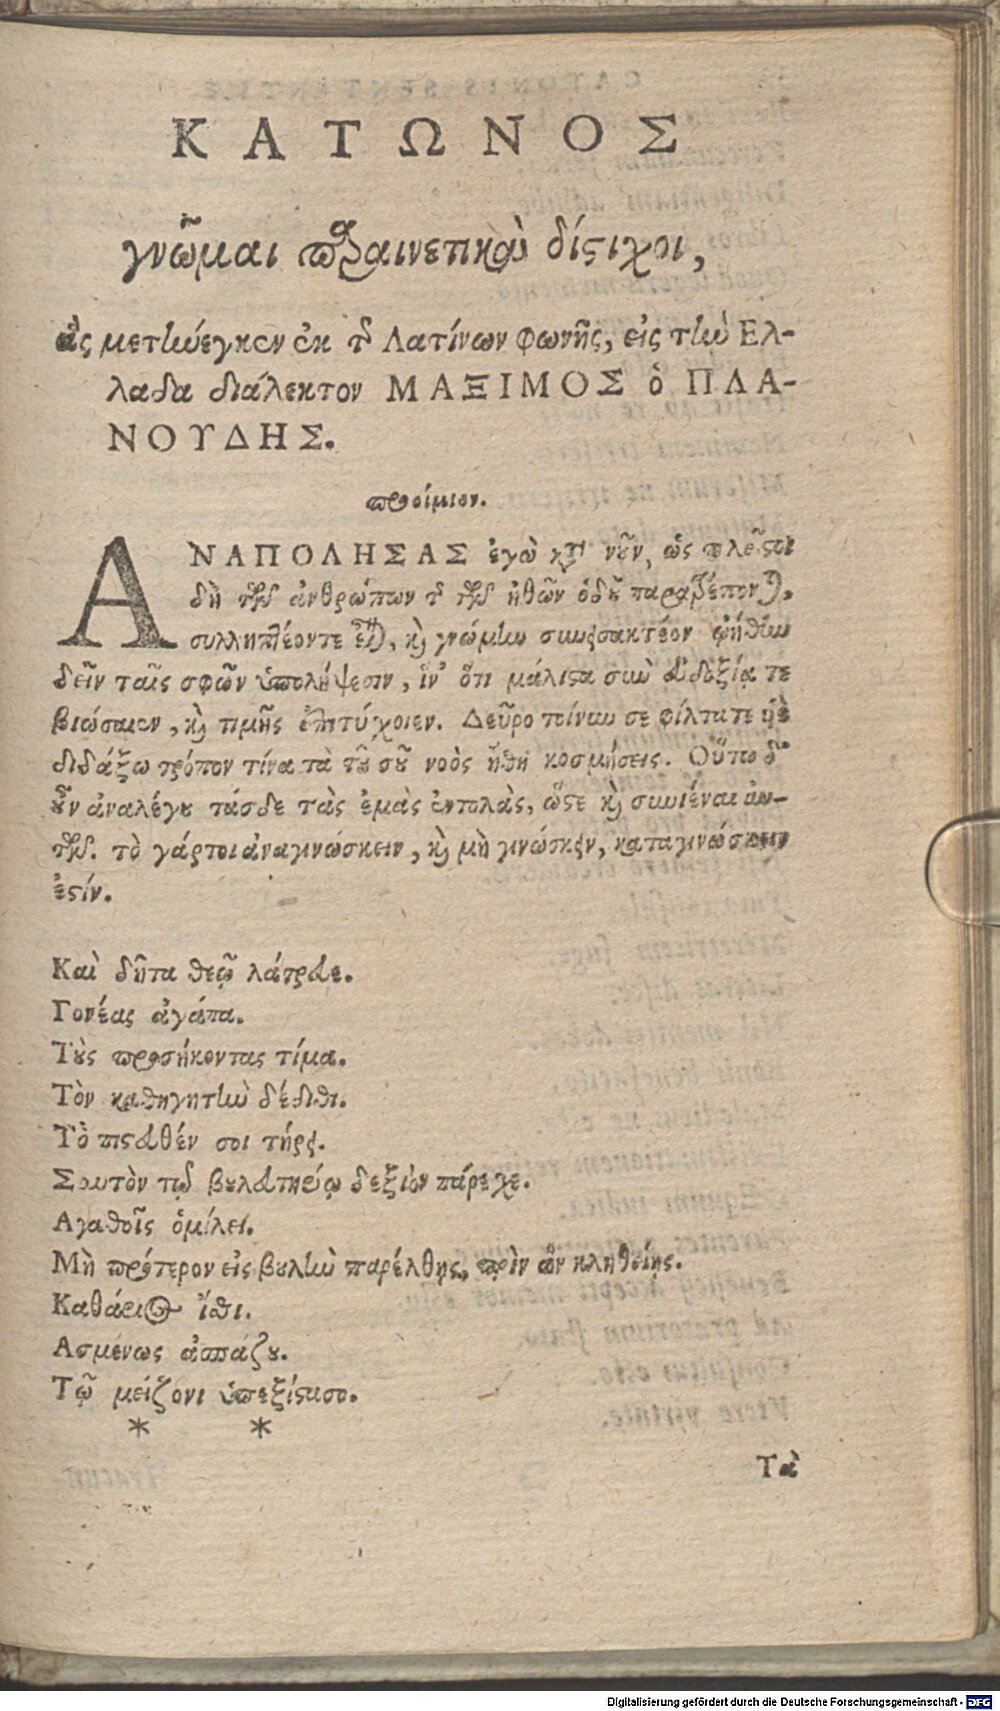 ΚΑΤΩΝΟΣ
γνῶμαι παραινετικαὶ δίστιχοι,
ἃς μετήνεγκεν ἐκ τῆς Λατίνων φωνῆς, εἰς τὴν Ελ-
λάδα διάλεκτον ΜΑΞΙΜΟΣ ὁ ΠΛΑ-
ΝΟΥΔΗΣ.
προοίμιον.
ΑΝΑΠΟΛΗΣΑΣ ἐγὼ κατὰ νοῦν, ὡς πλεῖστοι
δὴ τῶν ἀνθρώπων τῆς τῶν ἠθῶν ὁδοῦ παραβλέπονται,
συλληπτέον τε εἶναι, καὶ γνώμην συνεισακτέον ᾠήθην
δεῖν ταῖς σφῶν ὑπολήψεσιν, ἵν' ὅτι μάλιστα σὺν εὐδοξίᾳ τε
βιώσαιεν, καὶ τιμῆς ἐπιτύχοιεν. Δεῦρο τοίνυν σε φίλτατε υἱὲ
διδάξω τρόπον τίνα τὰ τοῦ σοῦ νοὸς ἤθη κοσμήσεις. Οὕτω δ'
οὖν ἀναλέγου τάσδε τὰς ἐμὰς ἐντολὰς, ὥστε καὶ συνιέναι αὐ-
τῶν. τὸ γάρτοι ἀναγινώσκειν, καὶ μὴ γινώσκειν, καταγινώσκειν
ἐστίν.
Καὶ δῆτα θεῷ λάτρευε.
Γονέας ἀγάπα.
Τοὺς προσήκοντας τίμα.
Τὸν καθηγητὴν δέδιθι.
Τὸ πιστευθέν σοι τήρει.
Σαυτὸν τῷ βουλευτηρίῳ δεξιὸν πάρεχε.
Αγαθοῖς ὁμίλει.
Μὴ πρότερον εἰς βουλὴν παρέλθῃς, πρὶν ἂν κληθείης.
Καθάριος ἴσθι.
Ασμένως ἀσπάζου.
Τῷ μείζονι ὑπεξίστασο.
* *
Τὰ
Digitalisierung gefördert durch die Deutsche Forschungsgemeinschaft - DFG